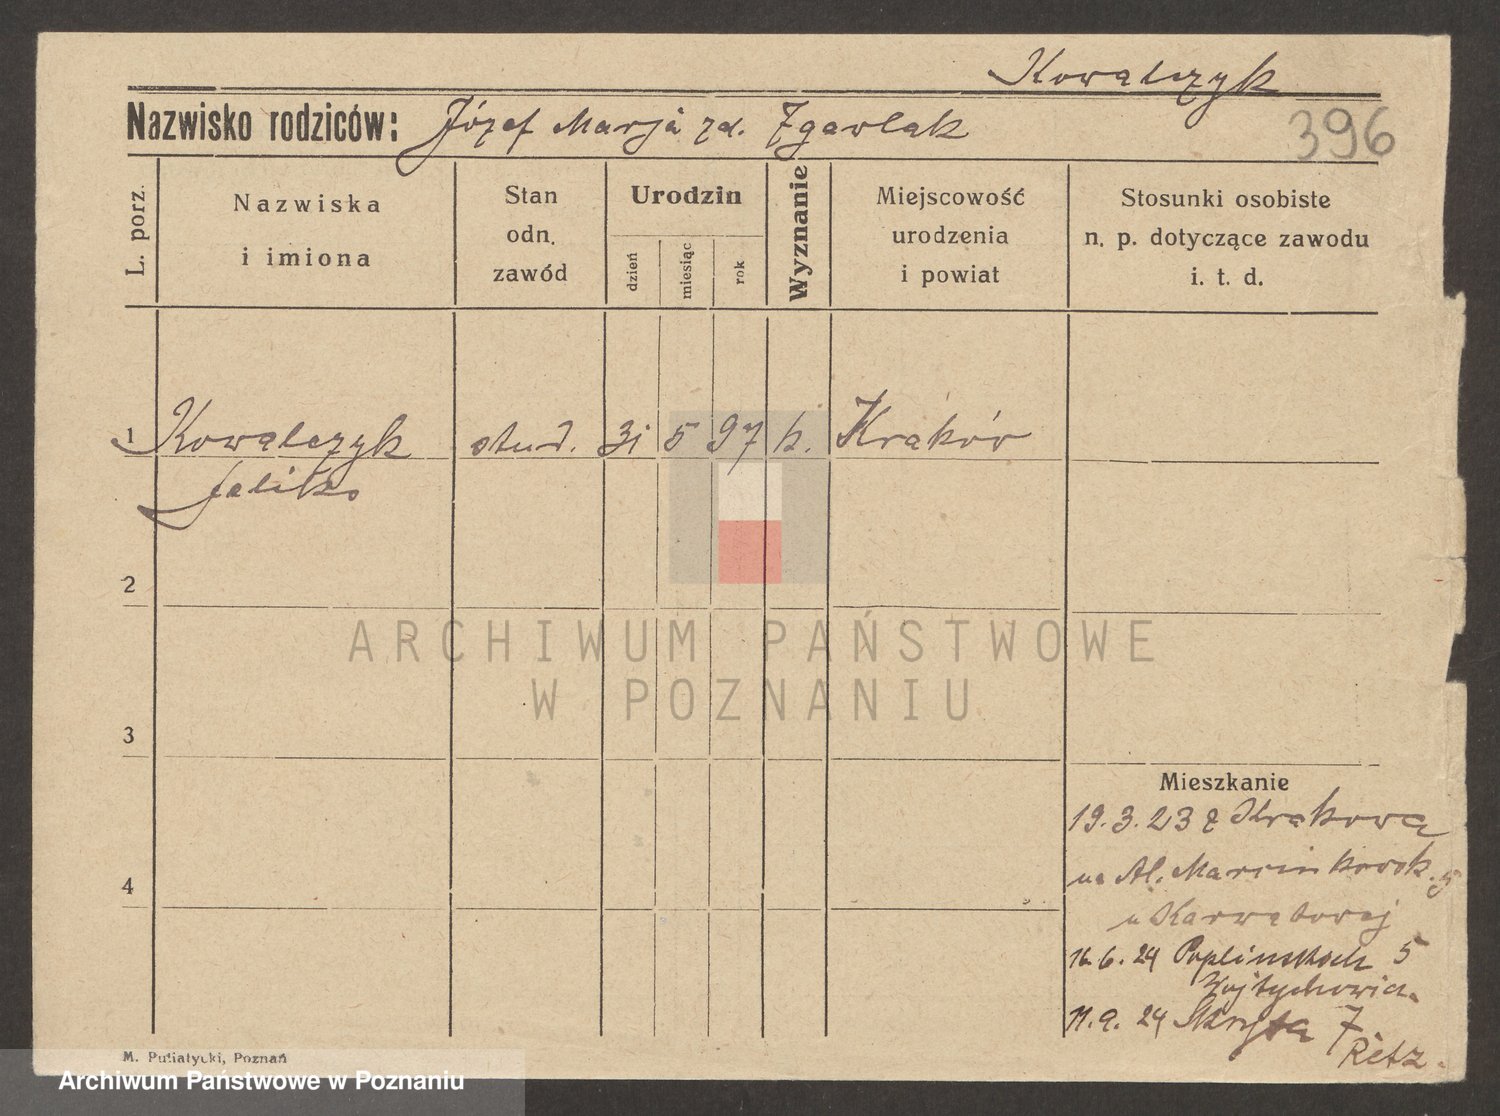 Kowalczyk
Nazwisko rodziców: Józef Marja zd.
396
L. porz.
Nazwiska
i imiona
Stan
odn.
zawód
Urodzin
dzień
miesiąc
rok
Wyznanie
Miejscowość
urodzenia
i powiat
Stosunki osobiste
n. p. dotyczące zawodu
i. t. d.
1 Kowalczyk stud. 31 5 97 k. Kraków
2
ARCHIWUM PAŃSTWOWE
W POZNANIU
3
4
Mieszkanie
19.3.23 z Krakowa
na Al. Marcinkowsk. 5
u
16.6.24 Poplińskich 5
11.9.24 Skryta 7
Retz.
M. Putiatycki, Poznań
Archiwum Państwowe w Poznaniu